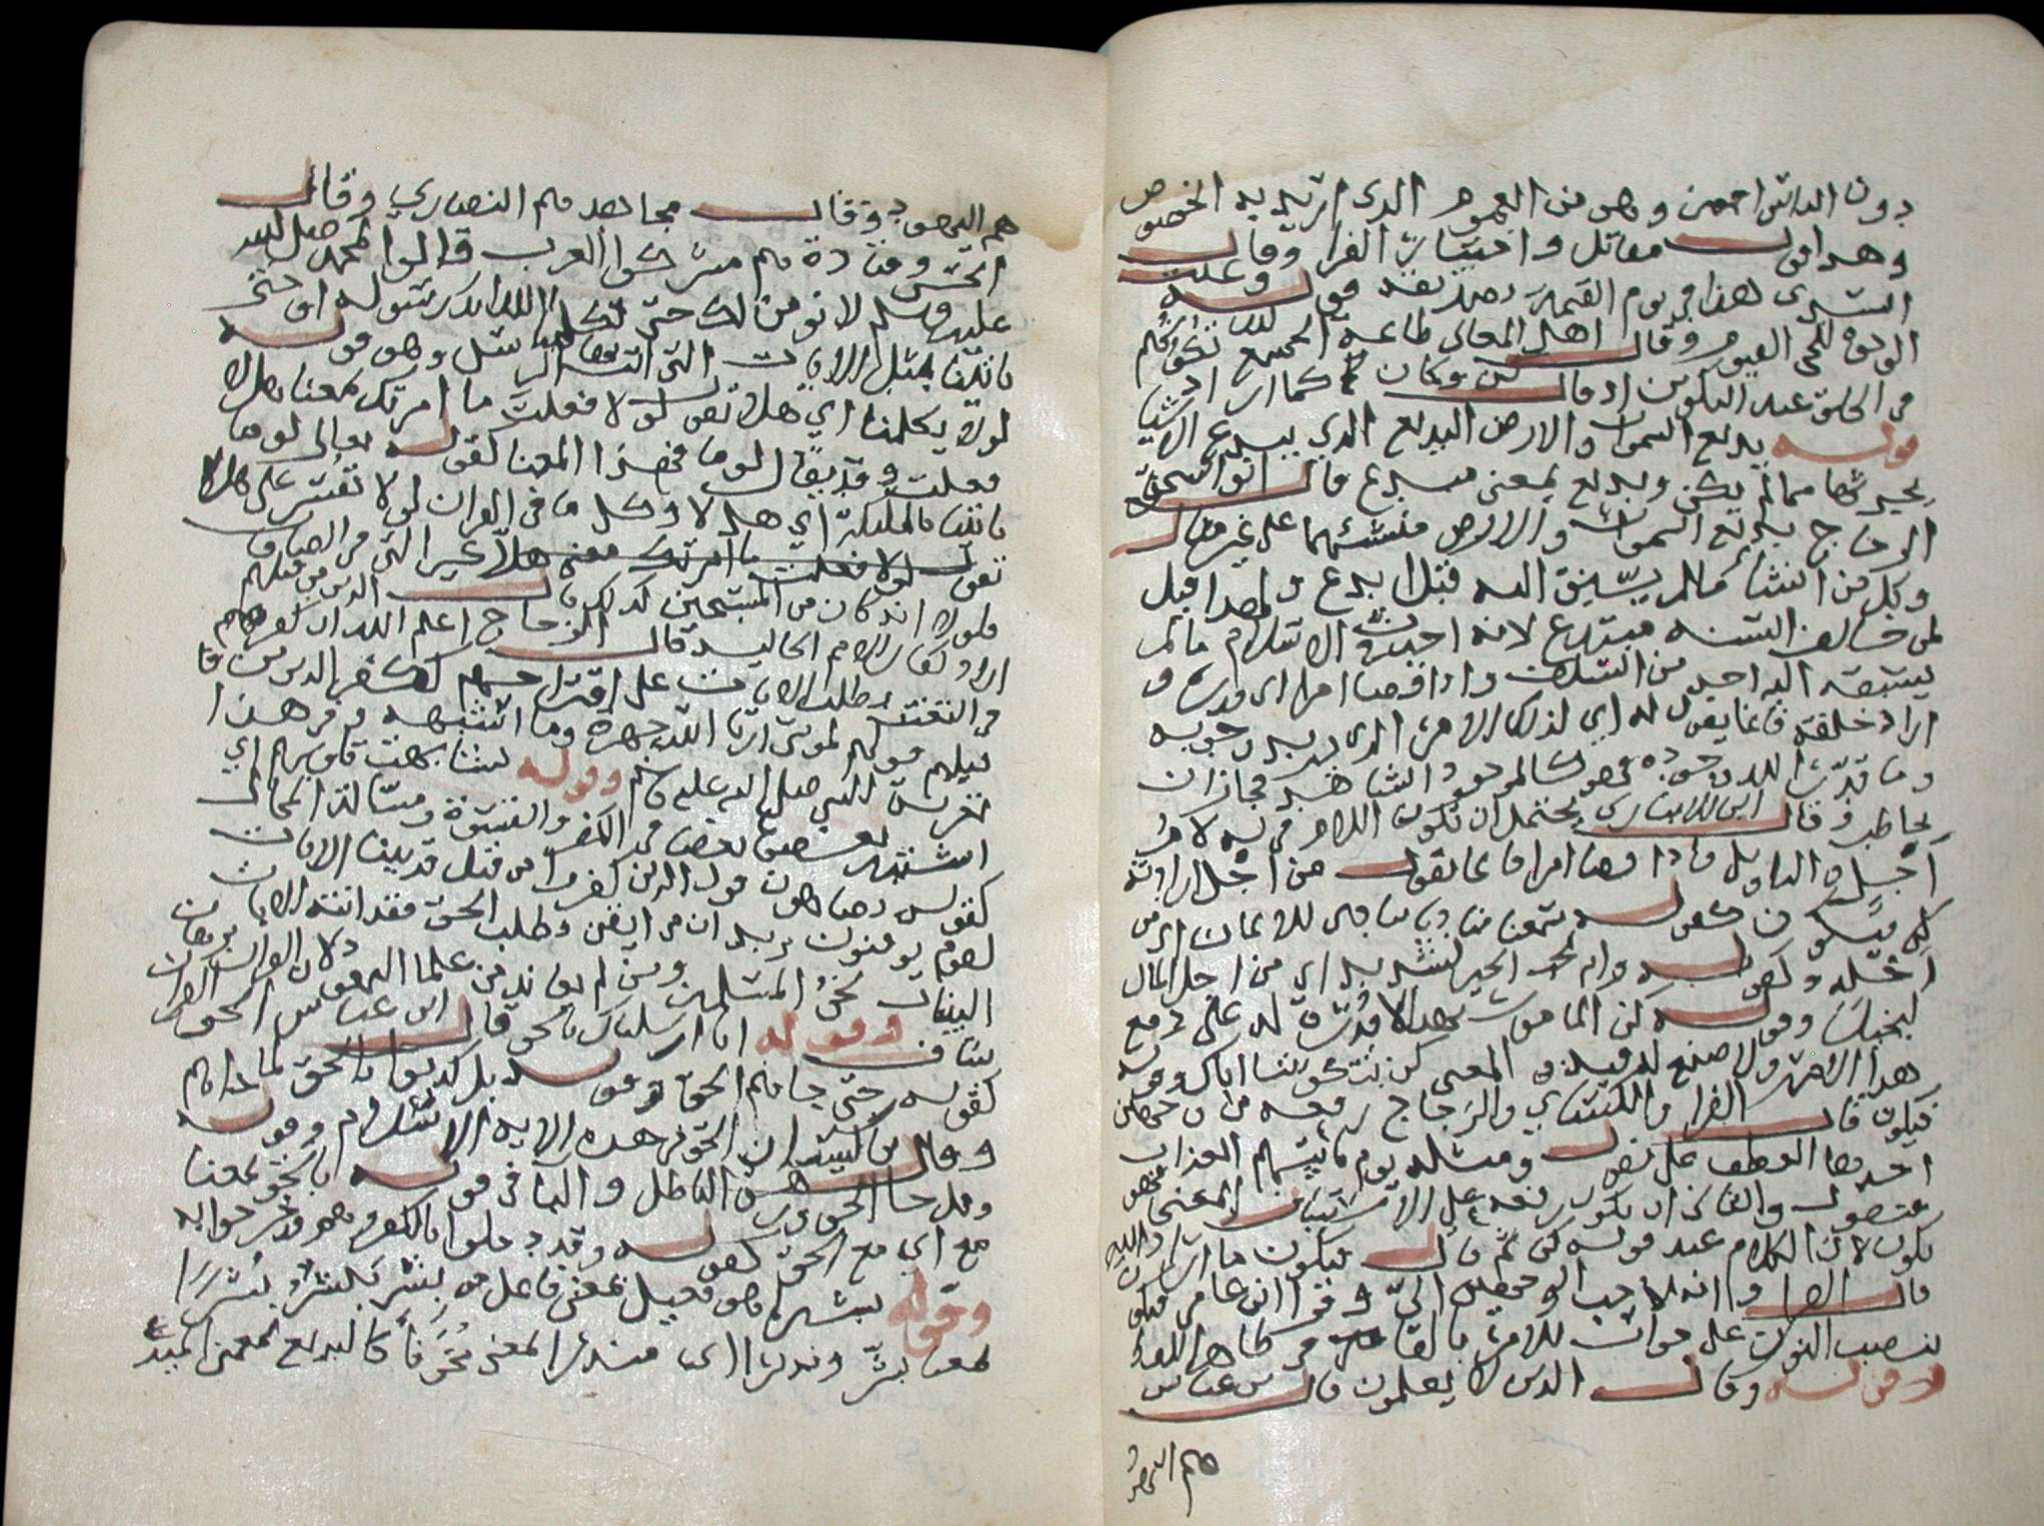 دون الناس اجمعين وهو من العموم الذى اريد به الخصوص
وهذا قول مقاتل واختيار الفرا وقال
السدى هذا فى يوم القيمة تصديقه قوله وعنت
الوجوه للحى القيوم وقال اهل المعانى طاعة الجميع لله تكونهم
فى الخلق عند التكوين اذ قال كن فكان كما اراد
قوله بديع السموات والارض البديع الذي يبدع الاشيا
يحدثها مما لم يكن وبديع بمعنى مبدع قال ابو اسحق
الزجاج بديع السموات والارض منشئهما على غير مثال
وكل من انشأ مالم يسبق اليه قيل ابدع ولهذا قيل
لمن خالف السنه مبتدع لانه احدث فى الاسلام ما لم
يسبقه اليه احد من السلف واذا قضا امرا اى قدره و
اراد خلقه فانما يقول له اي لذلك الامر الذى يريد وجوده
وما قدر الله وجوده فهو كالموجود الشاهد فجاز ان
يخاطب وقال ابن الانبارى يحتمل ان تكون اللام فى له لام
اجل والتاويل واذا قضا امرا فانما يقول من اجل ارادته
كن فيكون كقوله سمعنا مناديا ينادى للايمان اى من
اجله وكقوله وانه لحب الخير لشديد اى من اجل المال
لبخيل وقوله كن المامور بهذا لا قدرة له على دفع
هذا الامر ولا صنع له فيه والمعنى كن بتكويننا اياك وقوله
فيكون قال الفرا والكسائي والزجاج رفعه من وجهين
احدهما العطف على يقول ومثله يوم ياتيهم العذاب
فيقول والثانى ان يكون رفعه على الاستيناف المعنى فهو
يكون لان الكلام عند قوله كن ثم قال فيكون ما اراد الله
قال الفرا وانه لاحب الوجهين الىّ وقرا ابن عامر فيكون
بنصب النون على جواب الامر بالفا فى ظاهر اللفظ
وقوله وقال الذين لا يعلمون قال ابن عباس
هم اليهود
هم اليهود وقال مجاهد هم النصاري وقال
الحسن وقتادة هم مشركوا العرب قالوا لمحمد صلى الله
عليه وسلم لا نومن لك حتى تكلمنا الله انك رسوله او حتى
تاتينا بمثل الايات التى اتت بها الرسل وهو قوله
لولا يكلمنا اي هلا تقول لولا فعلت ما امرتك بمعنا هلا
فعلت وقد يقال لوما فى هذا المعنا لقوله تعالى لوما
تاتينا بالمليكة اي هلا وكل ما فى القران لولا تفسر على هلا
تقول لولا فعلت ما امرتك معنى هلا غير التى فى الصافات
فلولا انه كان من المسبحين كذلك قال الذين من قبلهم
اراد كفار الامم الخالية قال الزجاج اعلم الله ان كفرهم
فى التعنت بطلب الايات على اقتراحهم ككفر الذين من
قبلهم قولهم لموسى ارنا الله جهرة وما اشبهه وفى هذا
تعزية للنبى صلى الله عليه وسلم وقوله تشابهت قلوبهم اي
اشبه بعضها بعضا فى الكفر والقسوة ومسالة المحال
كقوله يضاهون قول الذين كفروا من قبل قد بينا الايات
لقوم يوقنون يريد ان من ايقن وطلب الحق فقد اتته الايات
البينات نحو المسلمين ومن لم يعاند من علما اليهود لان القران برهان
شاف وقوله انا ارسلناك بالحق قال ابن عباس الحق القران
كقوله حتى جاهم الحق وقوله بل كذبوا بالحق لما جاهم
وقال ابن كيسان الحق فى هذه الاية الاسلام وقوله
وقل جا الحق وزهق الباطل والبا فى قوله بالحق بمعنا
مع اي مع الحق كقوله وقد دخلوا بالكفر وهم قد خرجوا به
وقوله بشيرا هو فعيل بمعنى فاعل من بشر يبشر بشرا
بمعنا بشر ونذيرا اى منذرا بمعنى مخوفا كالبديع بمعنى المبدع